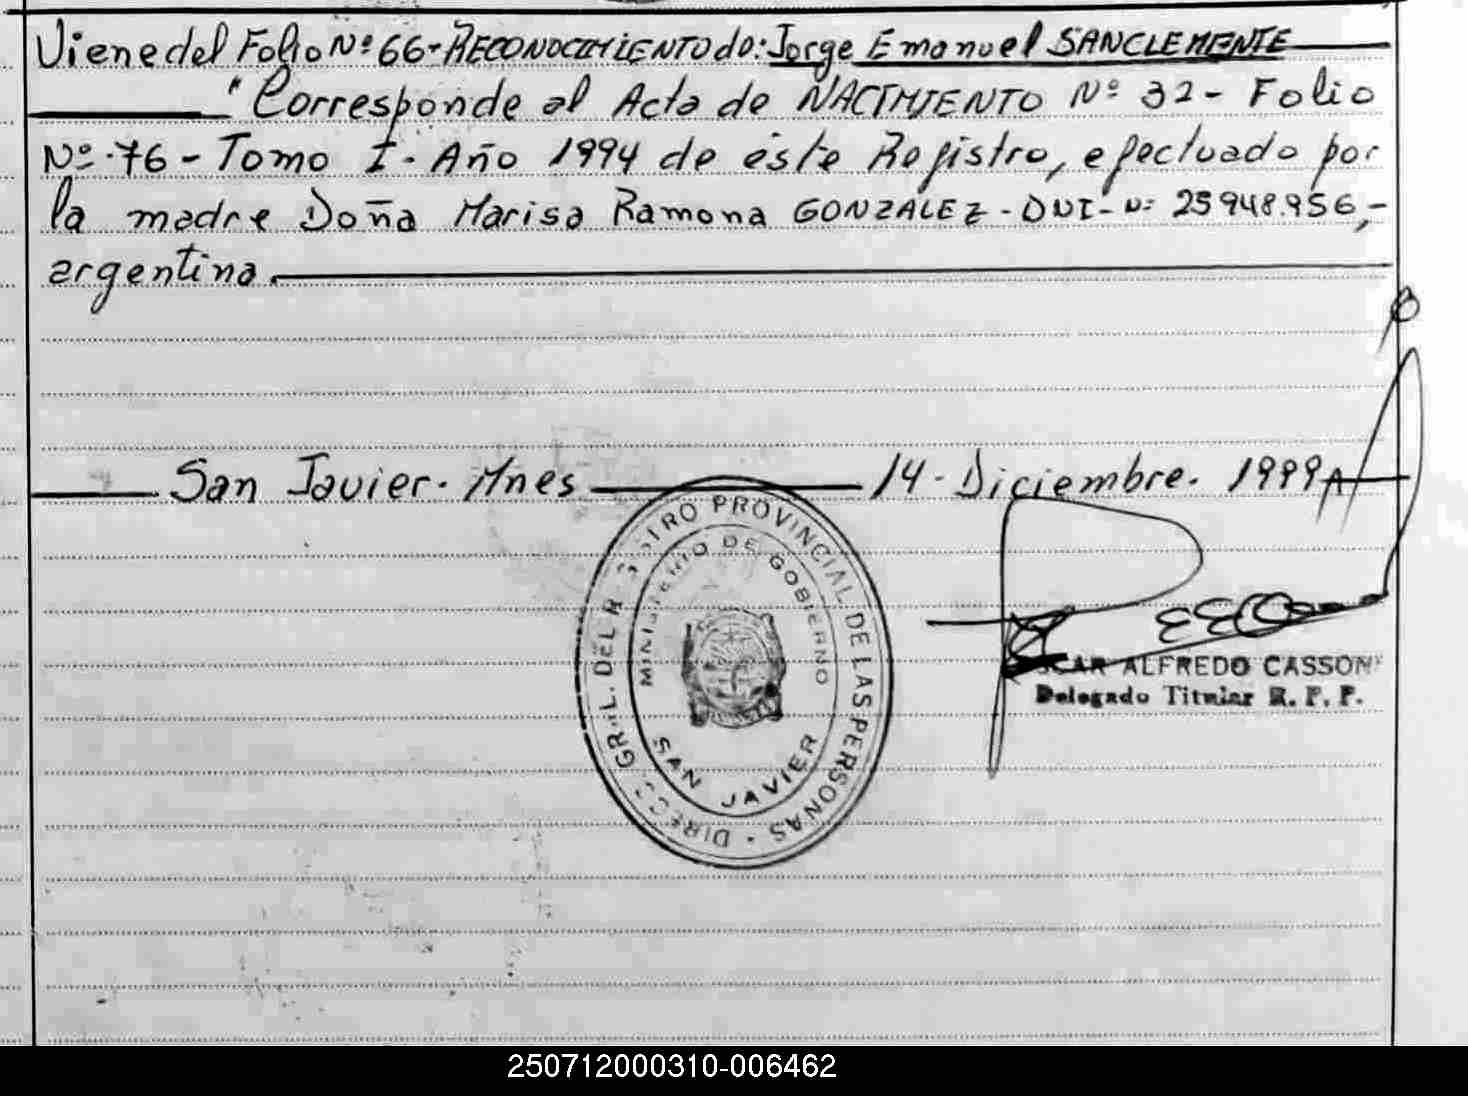 Viene del Folio Nº 66- RECONOCIMIENTO de: Jorge Emanuel SANCLEMENTE
"Corresponde al Acta de NACIMIENTO Nº 32- Folio
Nº 76- Tomo I- Año 1994 de éste Registro, efectuado por
la madre Doña Marisa Ramona GONZALEZ- DNI- Nº 25948.956,-
argentina.
San Javier. Mnes 14- Diciembre. 1999
DIRECC. GRAL. DEL REGISTRO PROVINCIAL DE LAS PERSONAS
MINISTERIO DE GOBIERNO
SAN JAVIER
OSCAR ALFREDO CASSONI
Delegado Titular R. P. P.
250712000310-006462